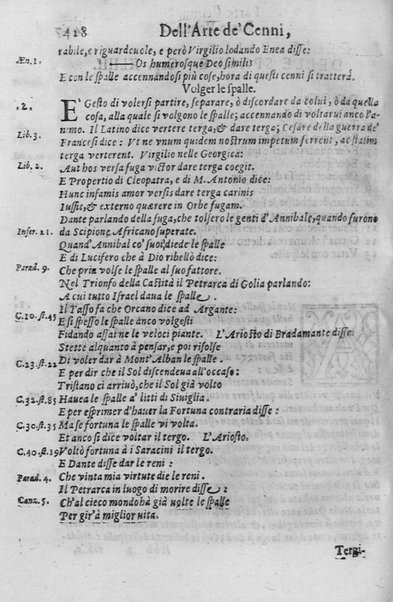 418 Dell'Arte de' Cenni,
rabile, e riguardeuole, e però Virgilio lodando Enea disse:
Æn. 1. Os humerosque Deo similis
E con le spalle accennandosi più cose, hora di questi cenni si tratterà.
Volger le spalle.
.2. E' Gesto di volersi partire, separare, ò discordare da colui, ò da quella
cosa, alla quale si volgono le spalle; accennando di voltarui anco l'a-
Lib. 3. nimo. Il Latino dice vertere terga, & dare terga; Cesare della guerra de'
Francesi dice: Vt ne vnum quidem nostrum impetum ferrent, ac statim
terga verterent. Virgilio nelle Georgica:
Lib. 2. Aut hos versa fuga victor dare terga coegit.
E Propertio di Cleopatra, e di M. Antonio dice:
Hunc infamis amor versis dare terga carinis
Iussit, & externo quærere in Orbe fugam.
Dante parlando della fuga, che tolsero le genti d'Annibale, quando furono
Infer. 21. da Scipione Africano superate.
Quand' Annibal co' suoi diede le spalle
E di Lucifero che à Dio ribellò dice:
Parad. 9. Che pria volse le spalle al suo fattore.
Nel Trionfo della Castità il Petrarca di Golia parlando:
A cui tutto Israel daua le spalle.
Il Tasso fa che Orcano dice ad Argante:
C. 10. st. 45 E si spesso le spalle anco volgesti
Fidando assai ne le veloci piante. L'Ariosto di Bradamante disse:
Stette alquanto à pensar, e poi risolse
C. 23. st. 22 Di voler dar à Mont'Alban le spalle.
E per dir che il Sol discendeua all'occaso:
Tristano ci arriuò, che il Sol già volto
C. 32. st. 85 Hauea le spalle a' litti di Siuiglia.
E per esprimer d'hauer la Fortuna contraria disse:
C. 30. st. 35 Ma se fortuna le spalle vi volta.
Et anco si dice voltar il tergo. L'Ariosto.
C. 40. st. 19 Voltò fortuna à i Saracini il tergo.
E Dante disse dar le reni:
Parad. 4. Che vinta mia virtute die le reni.
Il Petrarca in luogo di morire disse:
Canz. 5. Ch'al cieco mondo hà già volte le spalle
Per gir' à miglior vita.
Tergi-